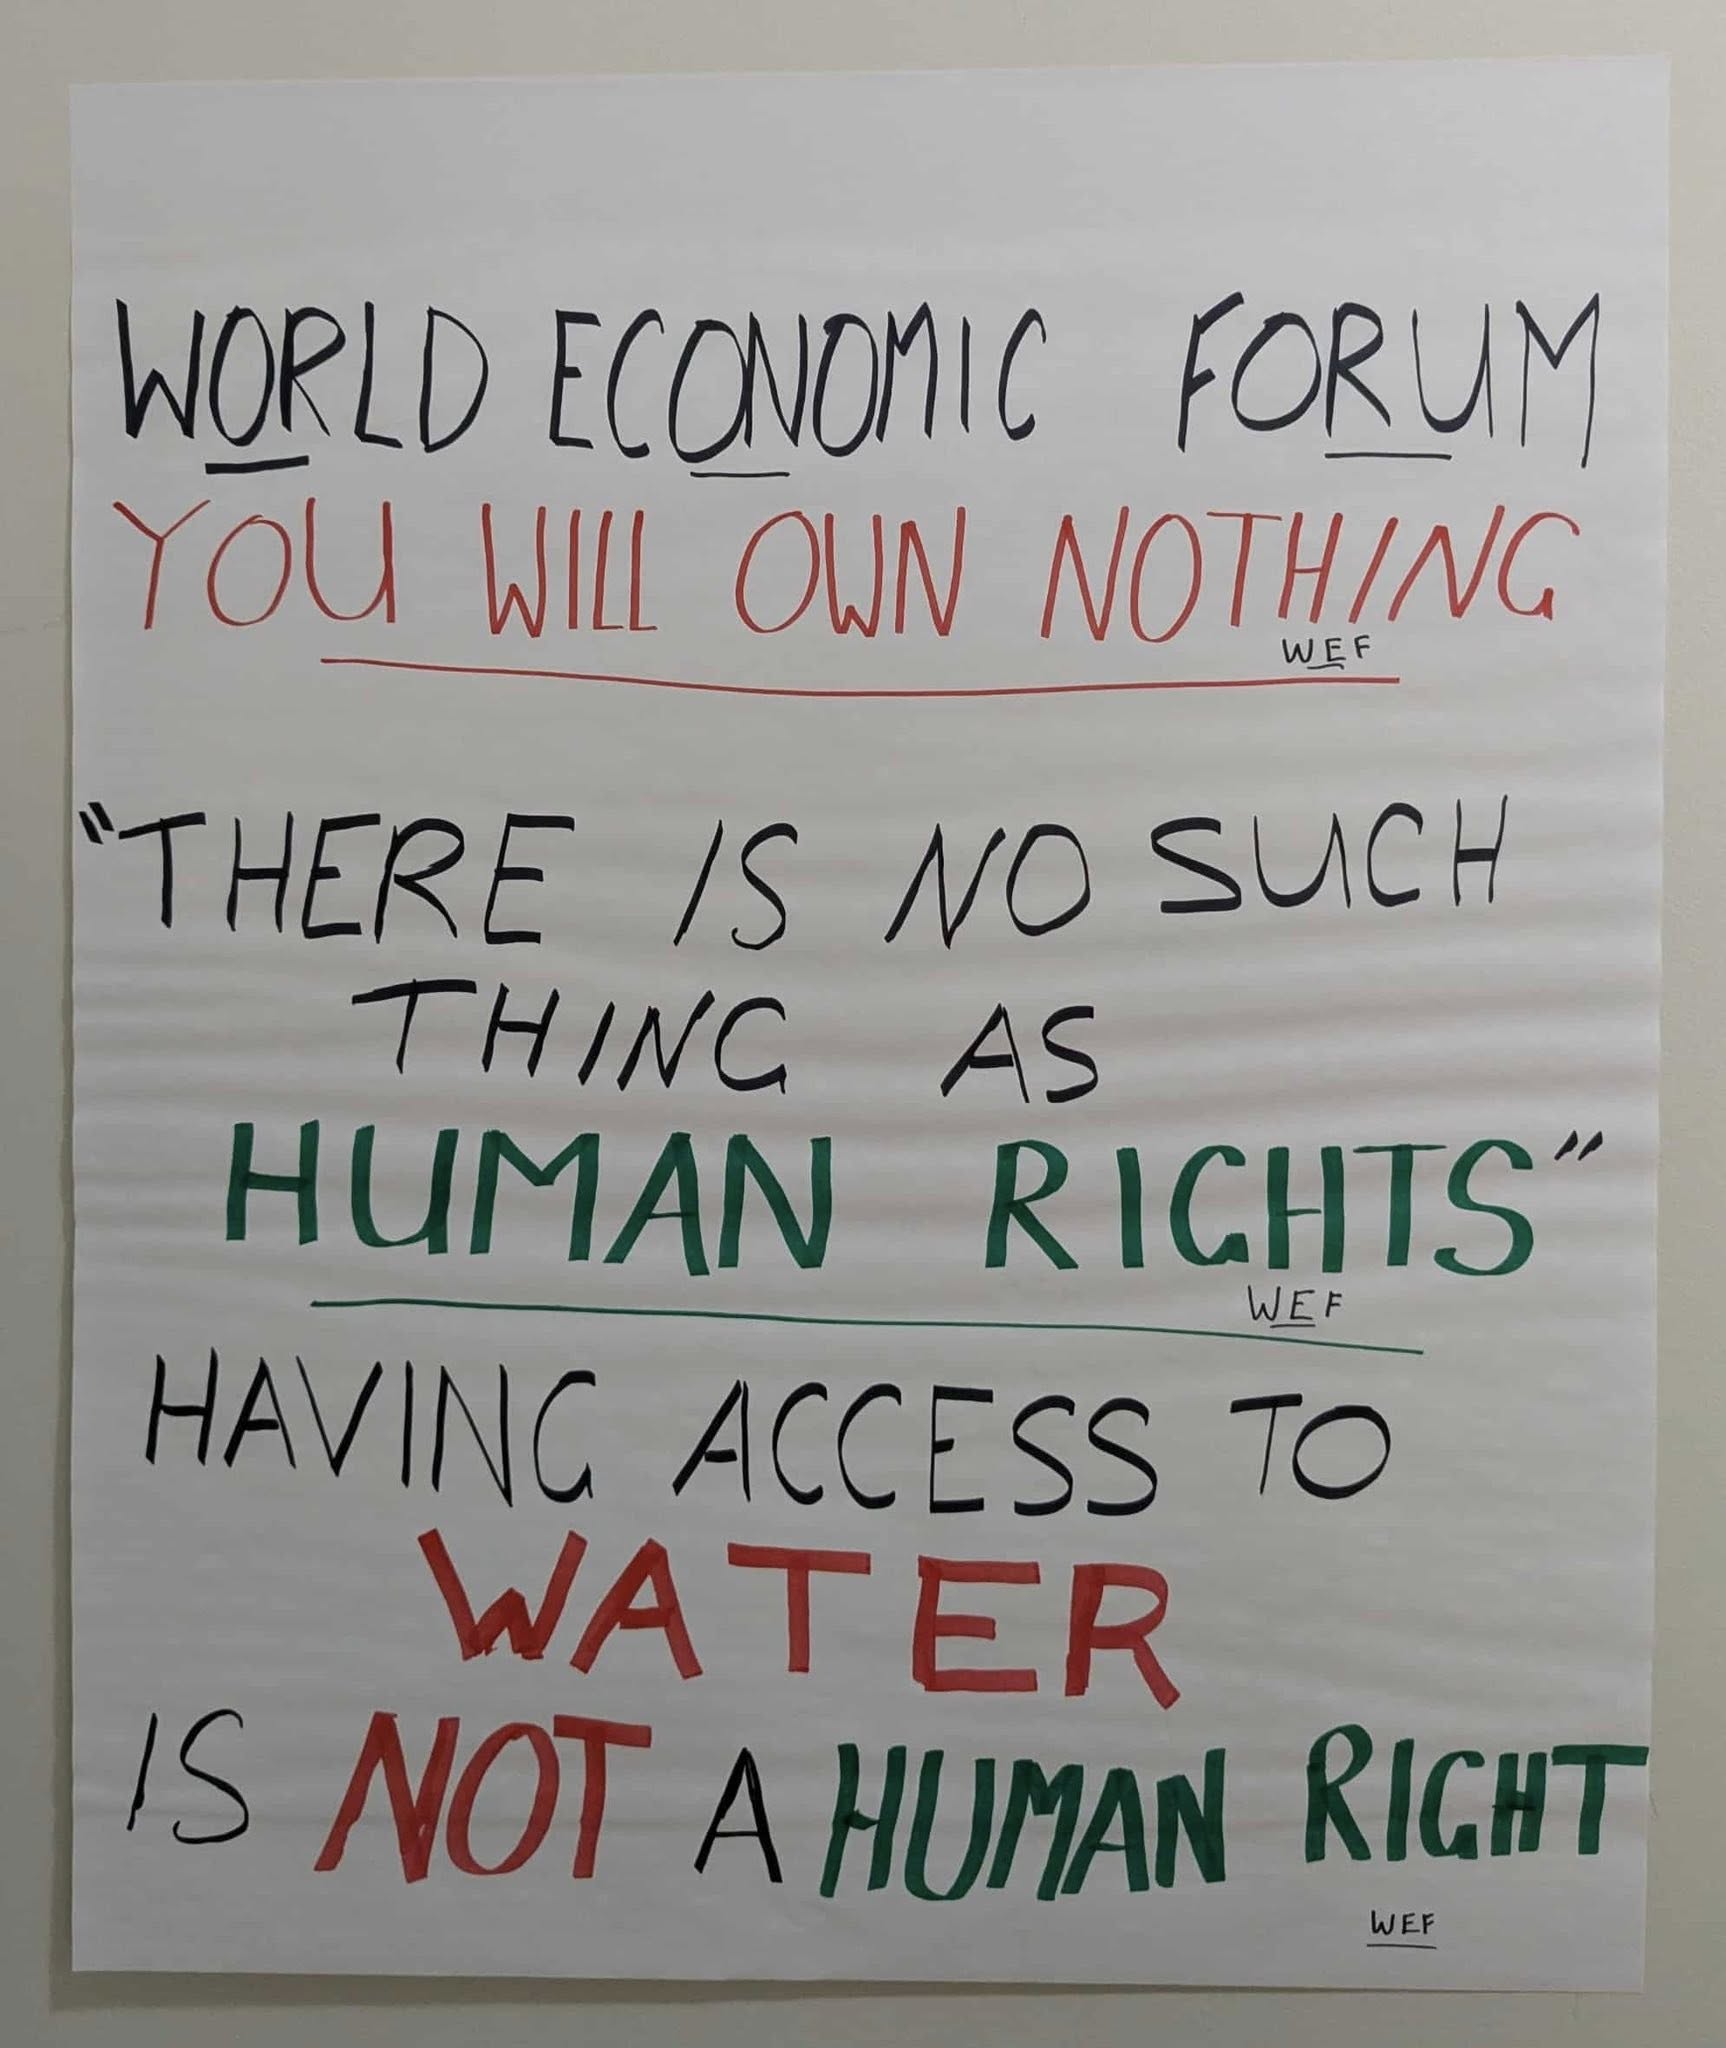 WORLD ECONOMIC FORUM
YOU WILL OWN NOTHING
WEF
"THERE IS NO SUCH
THING AS
HUMAN RIGHTS"
WEF
HAVING ACCESS TO
WATER
IS NOT A HUMAN RIGHT
WEF